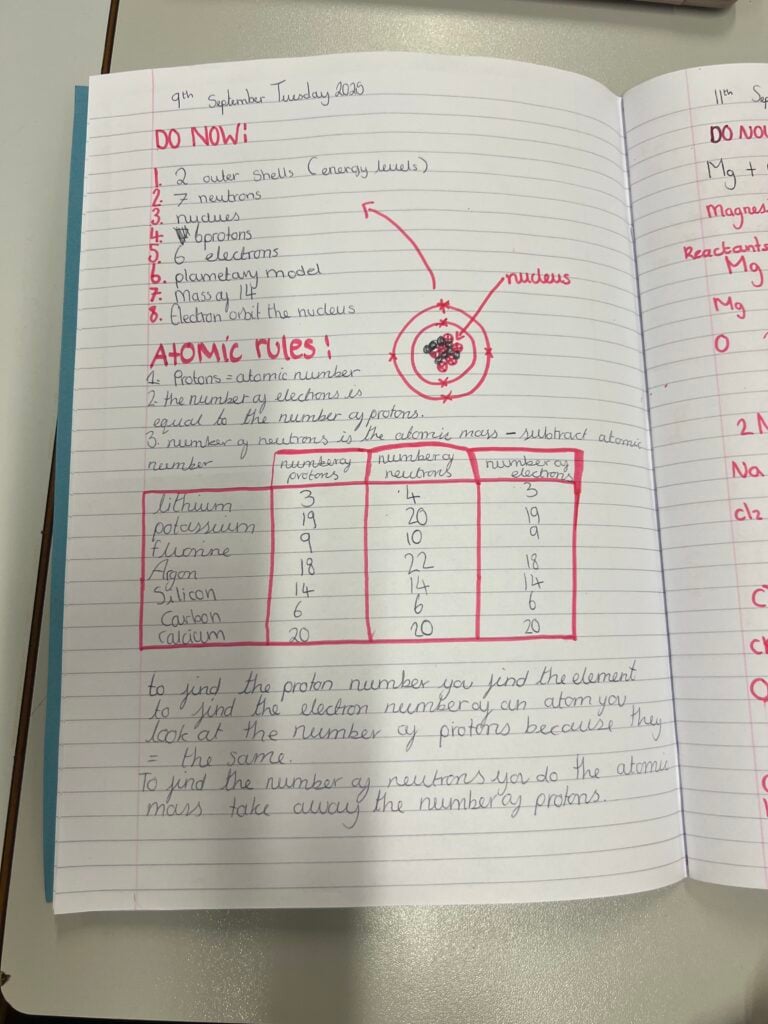 9th September Tuesday 2025
DO NOW:
1. 2 outer shells (energy levels)
2. 7 neutrons
3. nuclues
4. 6 protons
5. 6 electrons
6. plametary model
7. Mass of 14
8. Electron orbit the nucleus
nucleus
Atomic rules!
1. Protons = atomic number
2. the number of elections is
equal to the number of protons.
3. number of neutrons is the atomic mass - subtract atomic
number
number of protons number of neutrons number of electrons
lithium 3 4 3
potassium 19 20 19
fluorine 9 10 9
Argon 18 22 18
Silicon 14 14 14
Carbon 6 6 6
calcium 20 20 20
to find the proton number you find the element
to find the electron number of an atom you
look at the number of protons because they
= the same.
To find the number of neutrons you do the atomic
mass take away the number of protons.
11th Sep
DO NOW
Mg +
Magnes
Reactants
Mg
Mg
O
2
Na
Cl2